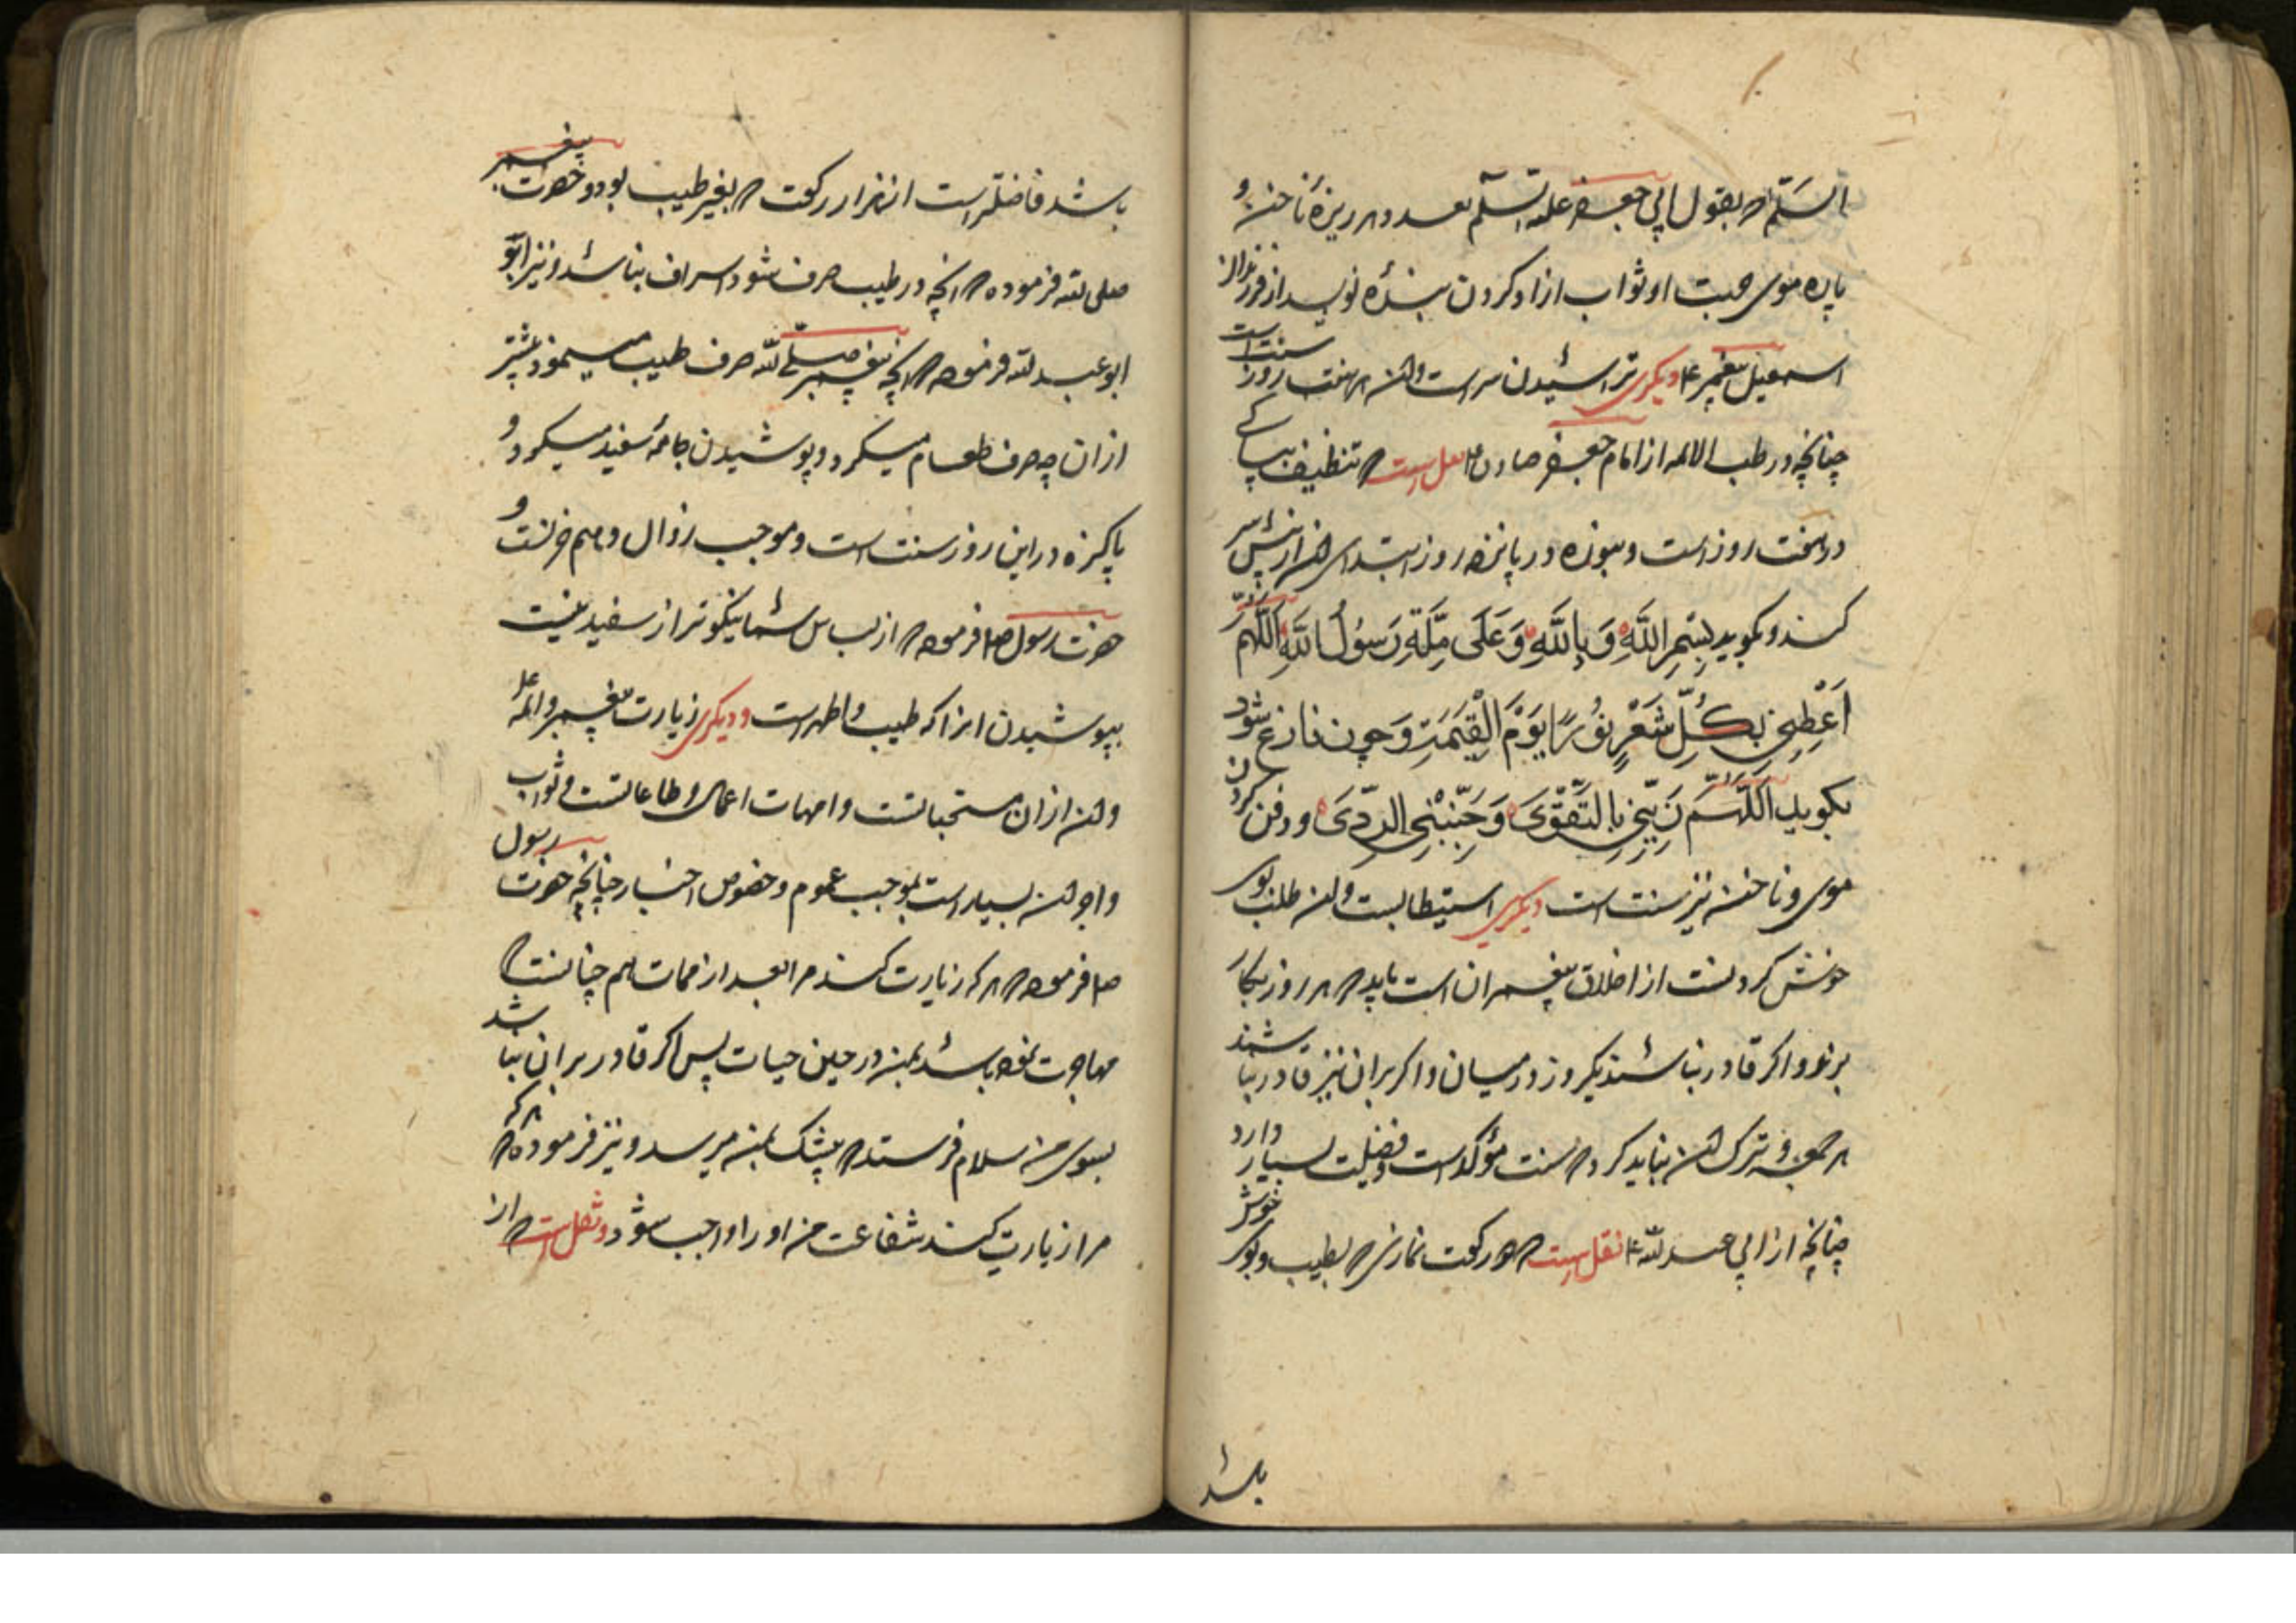 السلم که بقول ابی جعفر علیه السلم بعدد هر ریزه ناخن و
پاره موی جهت او ثواب ازاد کردن بنده نویسد از فرزندان
اسمعیل پیغمبر ع دیکری تراشیدن سر است وان هر هفت روز سنت است
چنانچه در طب الائمه از امام جعفر صادق ع نقل است که تنظیف بپاکی
در هفت روز است و بنوره در پانزده روز ابتدای ان از پیش سر
کند و بکوید بِسْمِ اللَّهِ وَ بِاللَّهِ وَعَلَى مِلَّةِ رَسُولِ اللَّهِ اَللَّهُمَّ
اَعْطِنِي بِكُلِّ شَعْرٍ نُورًا يَوْمَ الْقِيَمَةِ وَ چون فارغ شود
بکوید اَللَّهُمَّ زَيِّنِّي بِالتَّقْوَى وَجَنِّبْنِي الرَّدَى و دفن کردن
موی و ناخن نیز سنت است دیکری استیطابست وان طلب بوی
خوش کردنست از اخلاق پیغمبران است باید که هر روز بکار
برند و اکر قادر نباشند یکروز در میان و اکر بران نیز قادر نباشند
هر جمعه و ترک ان نباید کرد که سنت مؤکد است و فضیلت بسیار دارد
چنانچه از ابی عبدالله ع نقل است که دو رکعت نمازی که بطیب و بوی خوش
باشد
باشد فاضلتر است از هزار رکعت که بغیر طیب بود و حضرت پیغمبر
صلی لله فرموده که انچه در طیب صرف شود اسراف نباشد و نیز ابو
ابو عبدلله فرموده که انچه پیغمبر صلی لله صرف طیب مینمود بیشتر
از ان چه صرف طعام میکرد و پوشیدن جامه سفید میکرد و
پاکیزه در این روز سنت است و موجب زوال و هم حزنست و
حضرت رسول ص فرموده که از لباس شما نیکوتر از سفید نیست
بپوشیدن انرا که طیب و اطهر است و دیکری زیارت پیغمبر و ائمه ع
وان از ان مستحباتست و امهات اعمال و طاعاتست و ثواب
و اجر ان بسیار است بموجب عموم و خصوص اخبار چنانچه حضرت رسول
ص فرموده که هر که زیارت کند مرا بعد از ممات هم چنانست که
مهاجرت نموده باشد بمن در حین حیات پس اکر قادر بران نباشد
بسوی من سلام فرستد که بیشک بمن میرسد و نیز فرموده که هر که
مرا زیارت کند شفاعت من او را واجب شود و نقل است که از